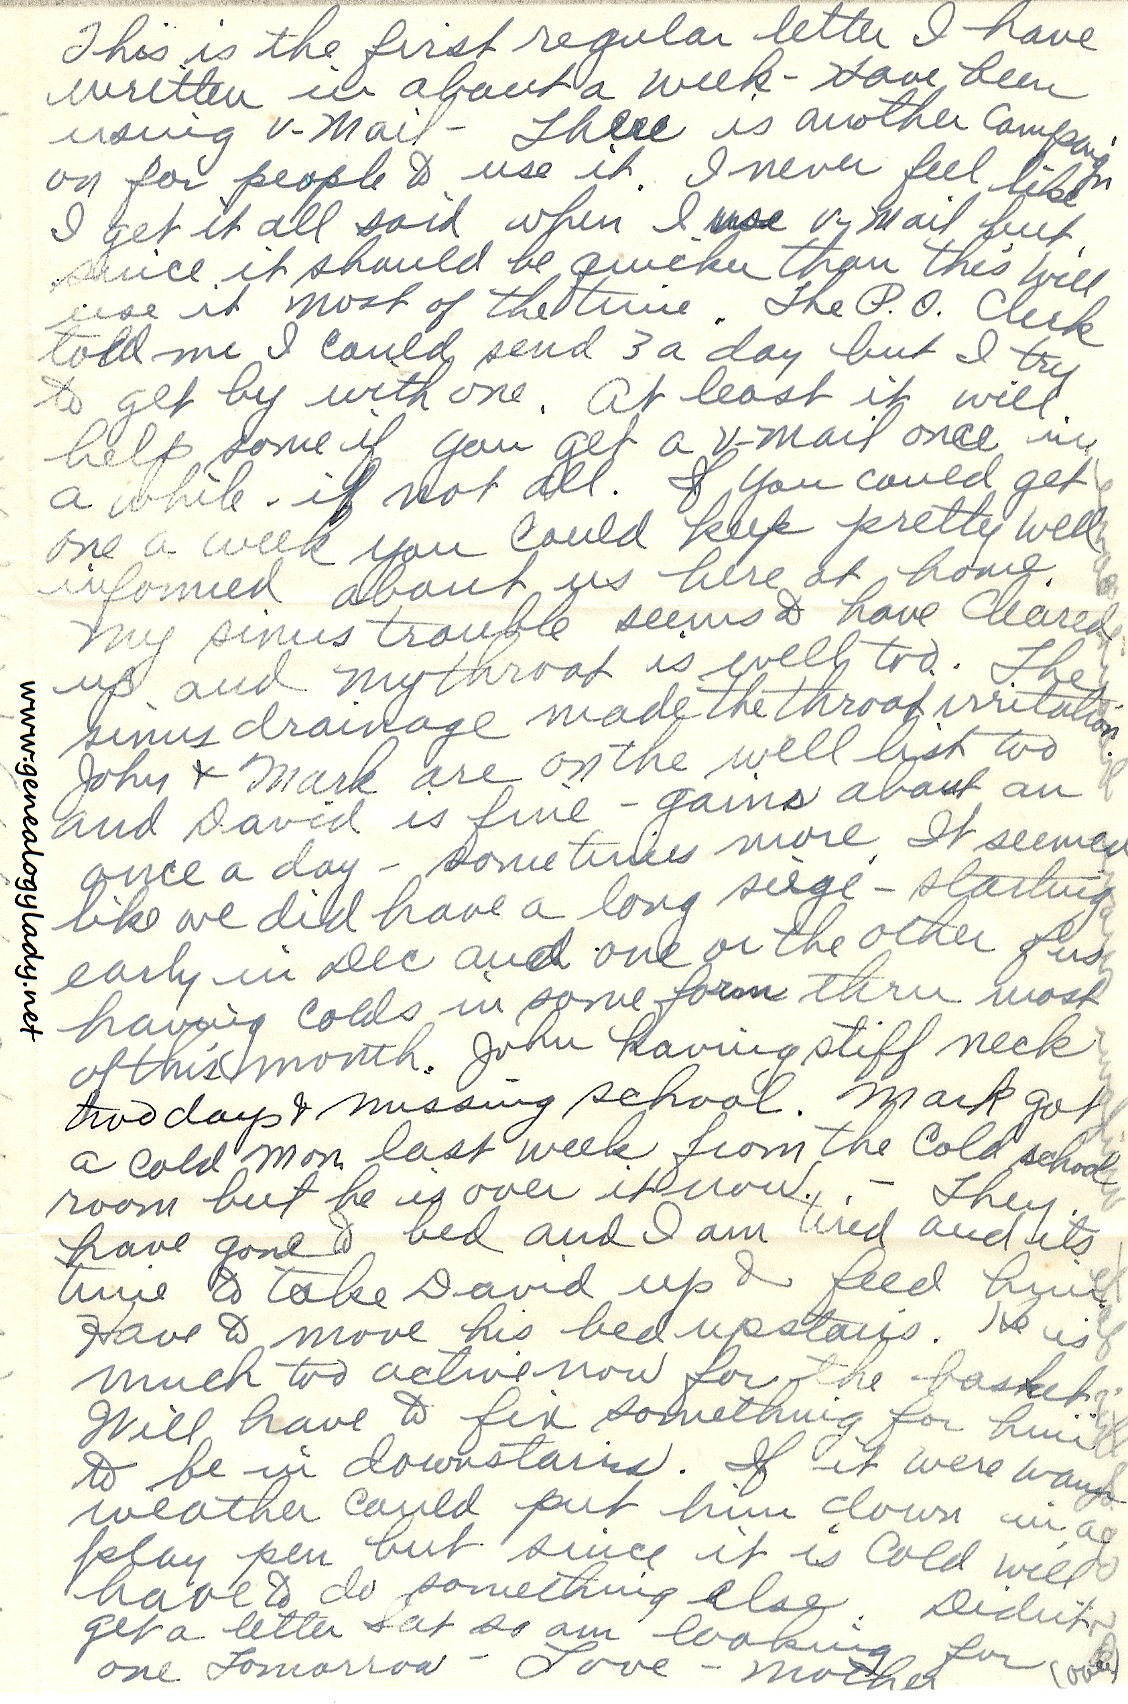 This is the first regular letter I have
written in about a week - Have been
using V-Mail - There is another campaign
on for people to use it. I never feel like
I get it all said when I use V-Mail but
since it should be quicker than this will
use it most of the time. The P.O. Clerk
told me I could send 3 a day but I try
to get by with one. At least it will
help some if you get a V-Mail once in
a while - if not all. If you could get
one a week you could keep pretty well
informed about us here at home.
My sinus trouble seems to have cleared
up and my throat is well too. The
sinus drainage made the throat irritation.
John + Mark are on the well list too
and David is fine - gains about an
once a day - sometimes more. It seemed
like we did have a long siege - starting
early in Dec and one or the other of us
having colds in some form thru most
of this month. John having stiff neck
two days & missing school. Mark got
a cold Mon last week from the cold school
room but he is over it now. - They
have gone to bed and I am tired and its
time to take David up & feed him.
Have to move his bed upstairs. He is
much too active now for the basket.
Will have to fix something for him
to be in downstairs. If it were warm
weather could put him down in a
play pen but since it is cold will
have to do something else. Didn't
get a letter Sat so am looking for
one tomorrow - Love - Mother (over)
www.genealogylady.net